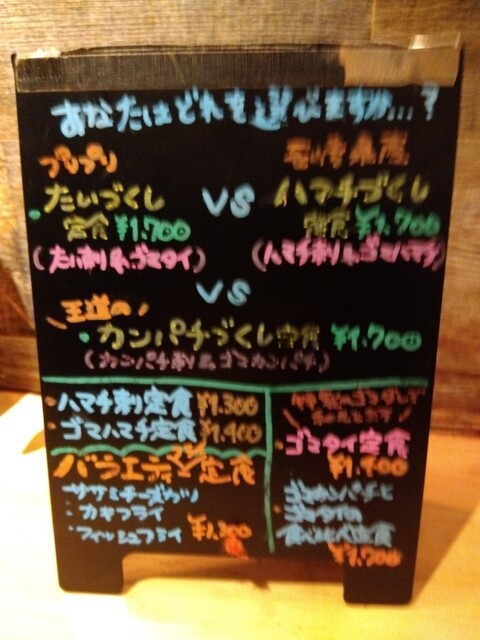 あなたはどれを選びますか…?
プリプリ
たいづくし
定食 ¥1,700
(たい刺&ゴマタイ)
VS
ハマチづくし
定食 ¥1,700
(ハマチ刺&ゴマハマチ)
VS
王道の
・カンパチづくし定食 ¥1,700
(カンパチ刺&ゴマカンパチ)
・ハマチ刺定食 ¥1,300
・ゴマハマチ定食 ¥1,400
バラエティー定食
ササミチーズカツ
・カキフライ
・フィッシュフライ ¥1,300
・ゴマタイ定食
¥1,400
ゴマカンパチと
・ゴマタイの
食べ比べ定食
¥1,700